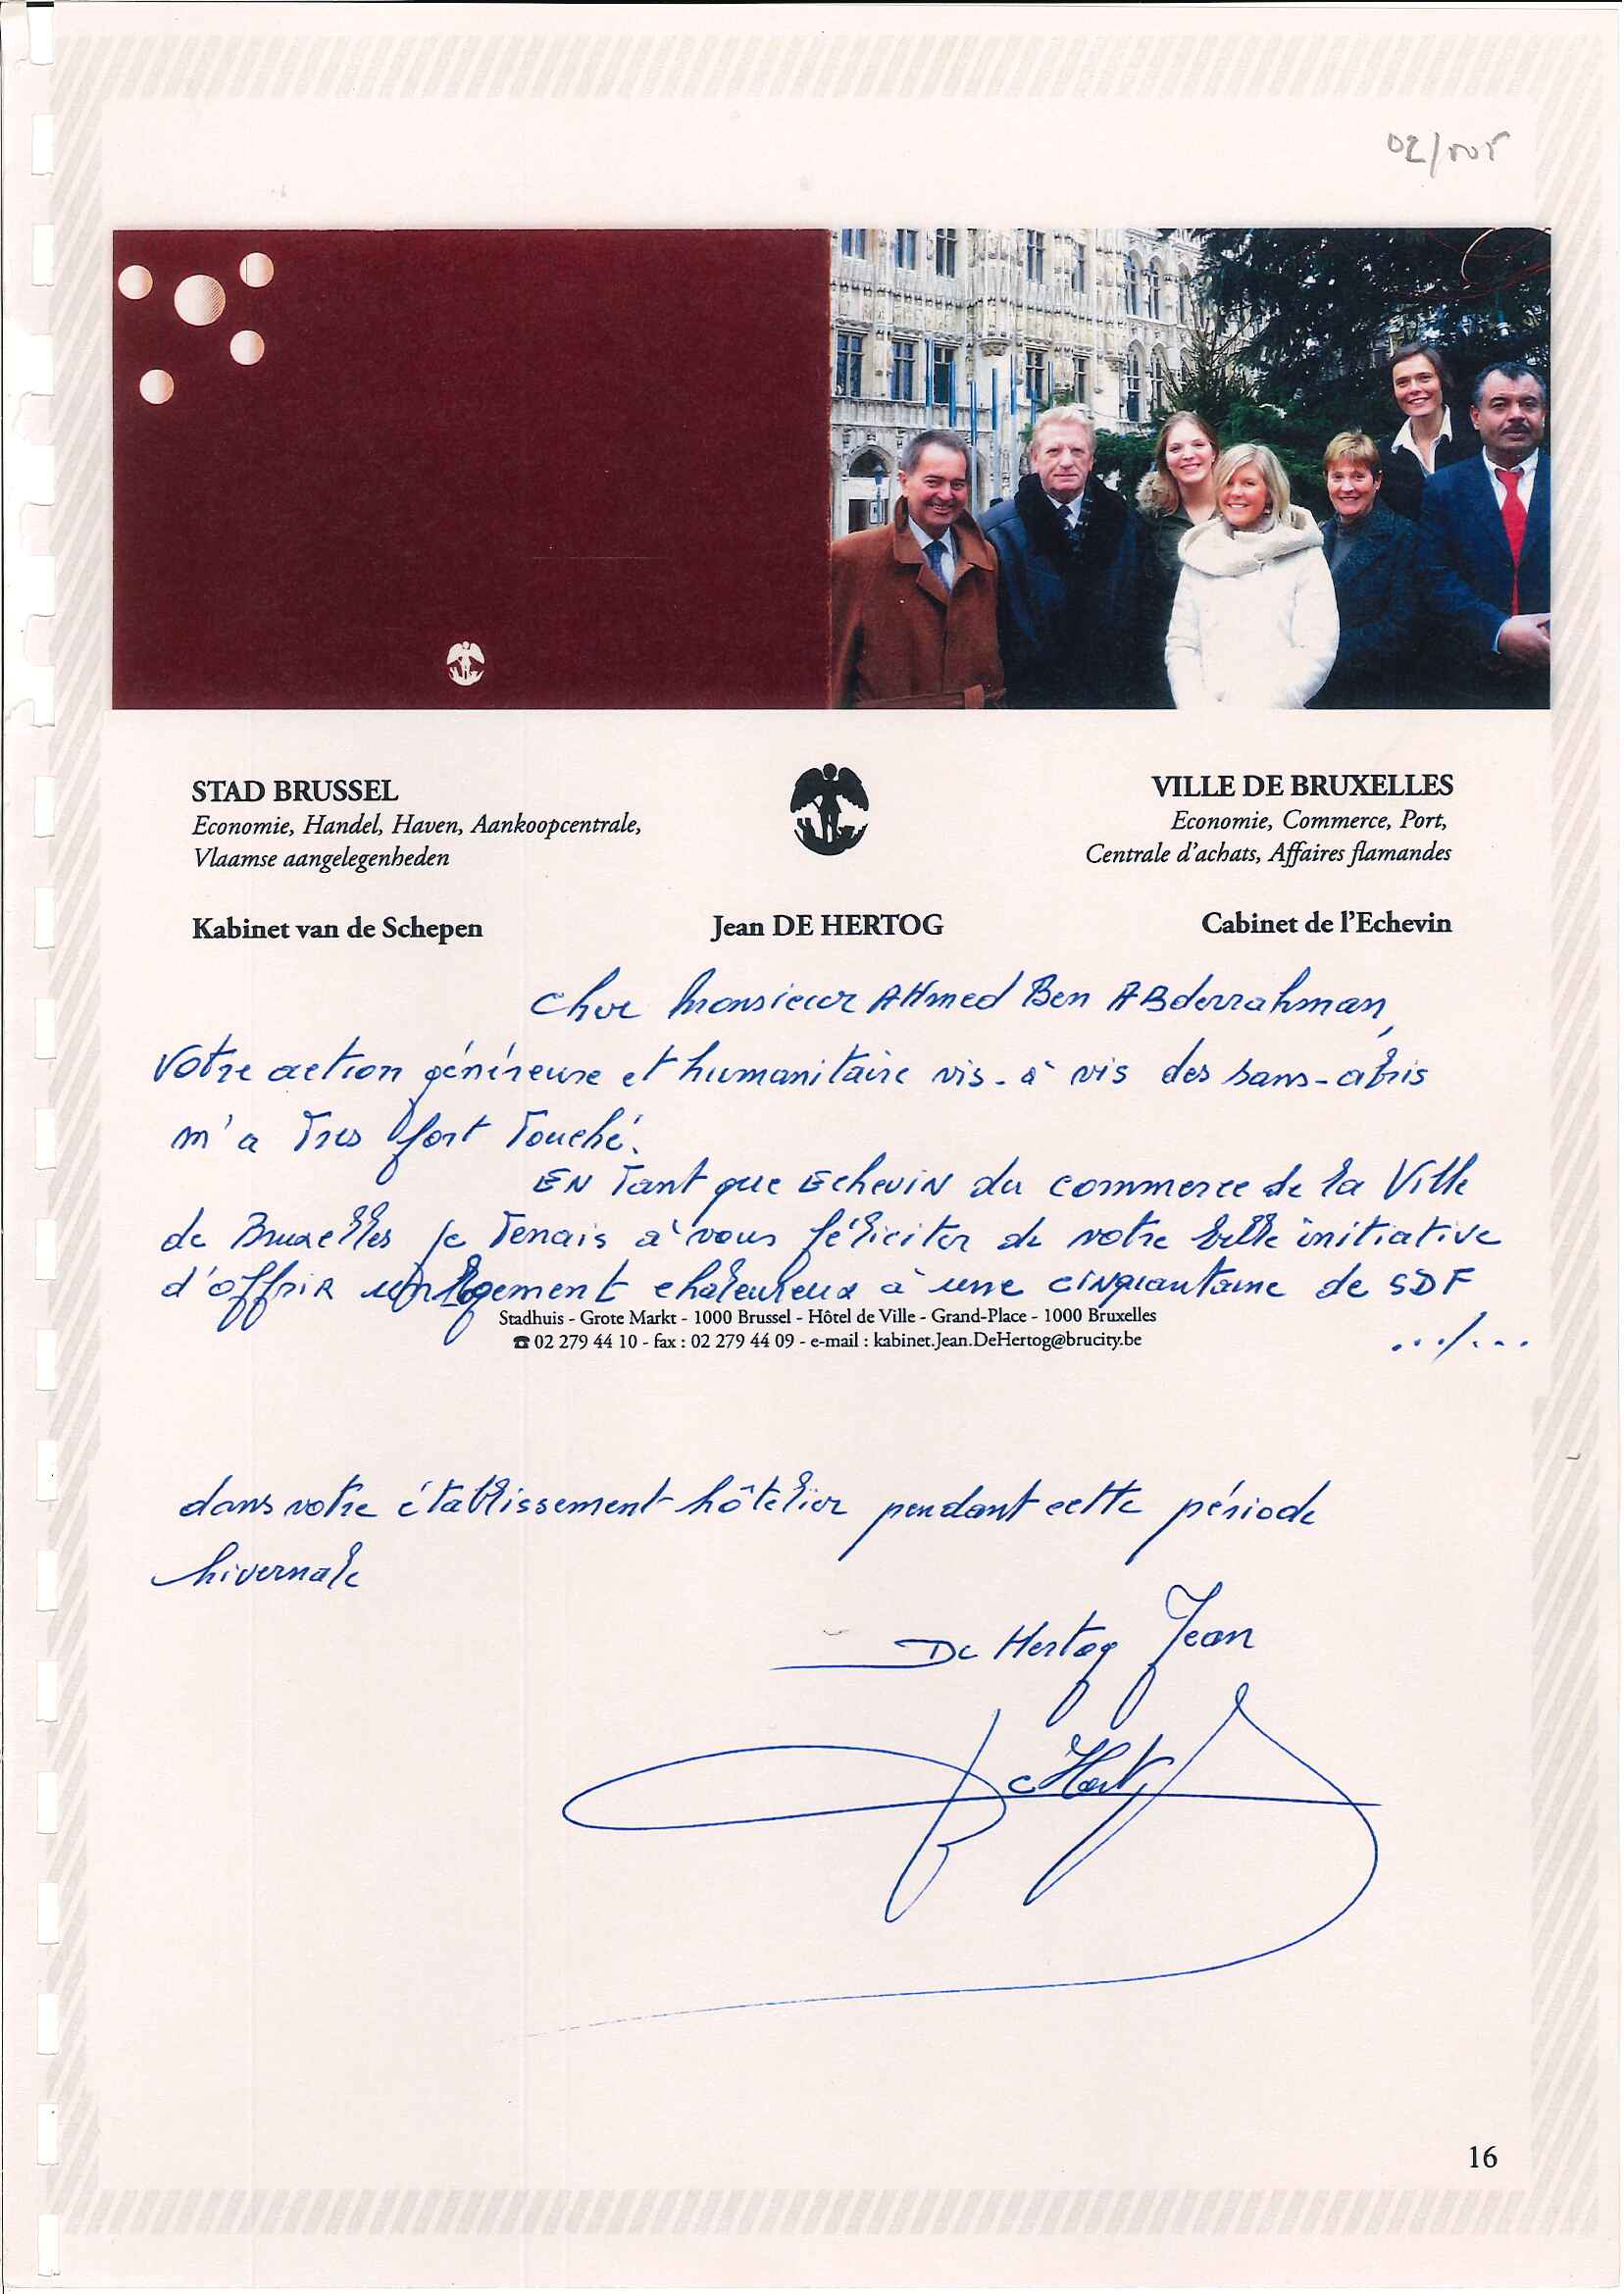 02/2005
STAD BRUSSEL
Economie, Handel, Haven, Aankoopcentrale,
Vlaamse aangelegenheden
Kabinet van de Schepen
Jean DE HERTOG
VILLE DE BRUXELLES
Economie, Commerce, Port,
Centrale d'achats, Affaires flamandes
Cabinet de l'Echevin
Cher Monsieur AHmed Ben ABderrahman,
Votre action généreuse et humanitaire vis-à vis des sans-abris
m'a Très fort Touché.
EN Tant que EchevIN du commerce de la Ville
de Bruxelles je Tenais à vous féliciter de votre belle initiative
d'offrir un logement chaleureux à une cinquantaine de SDF
Stadhuis - Grote Markt - 1000 Brussel - Hôtel de Ville - Grand-Place - 1000 Bruxelles
☎ 02 279 44 10 - fax : 02 279 44 09 - e-mail : kabinet.Jean.DeHertog@brucity.be
.../...
dans votre établissement hôtelier pendant cette période
hivernale
De Hertog Jean
16